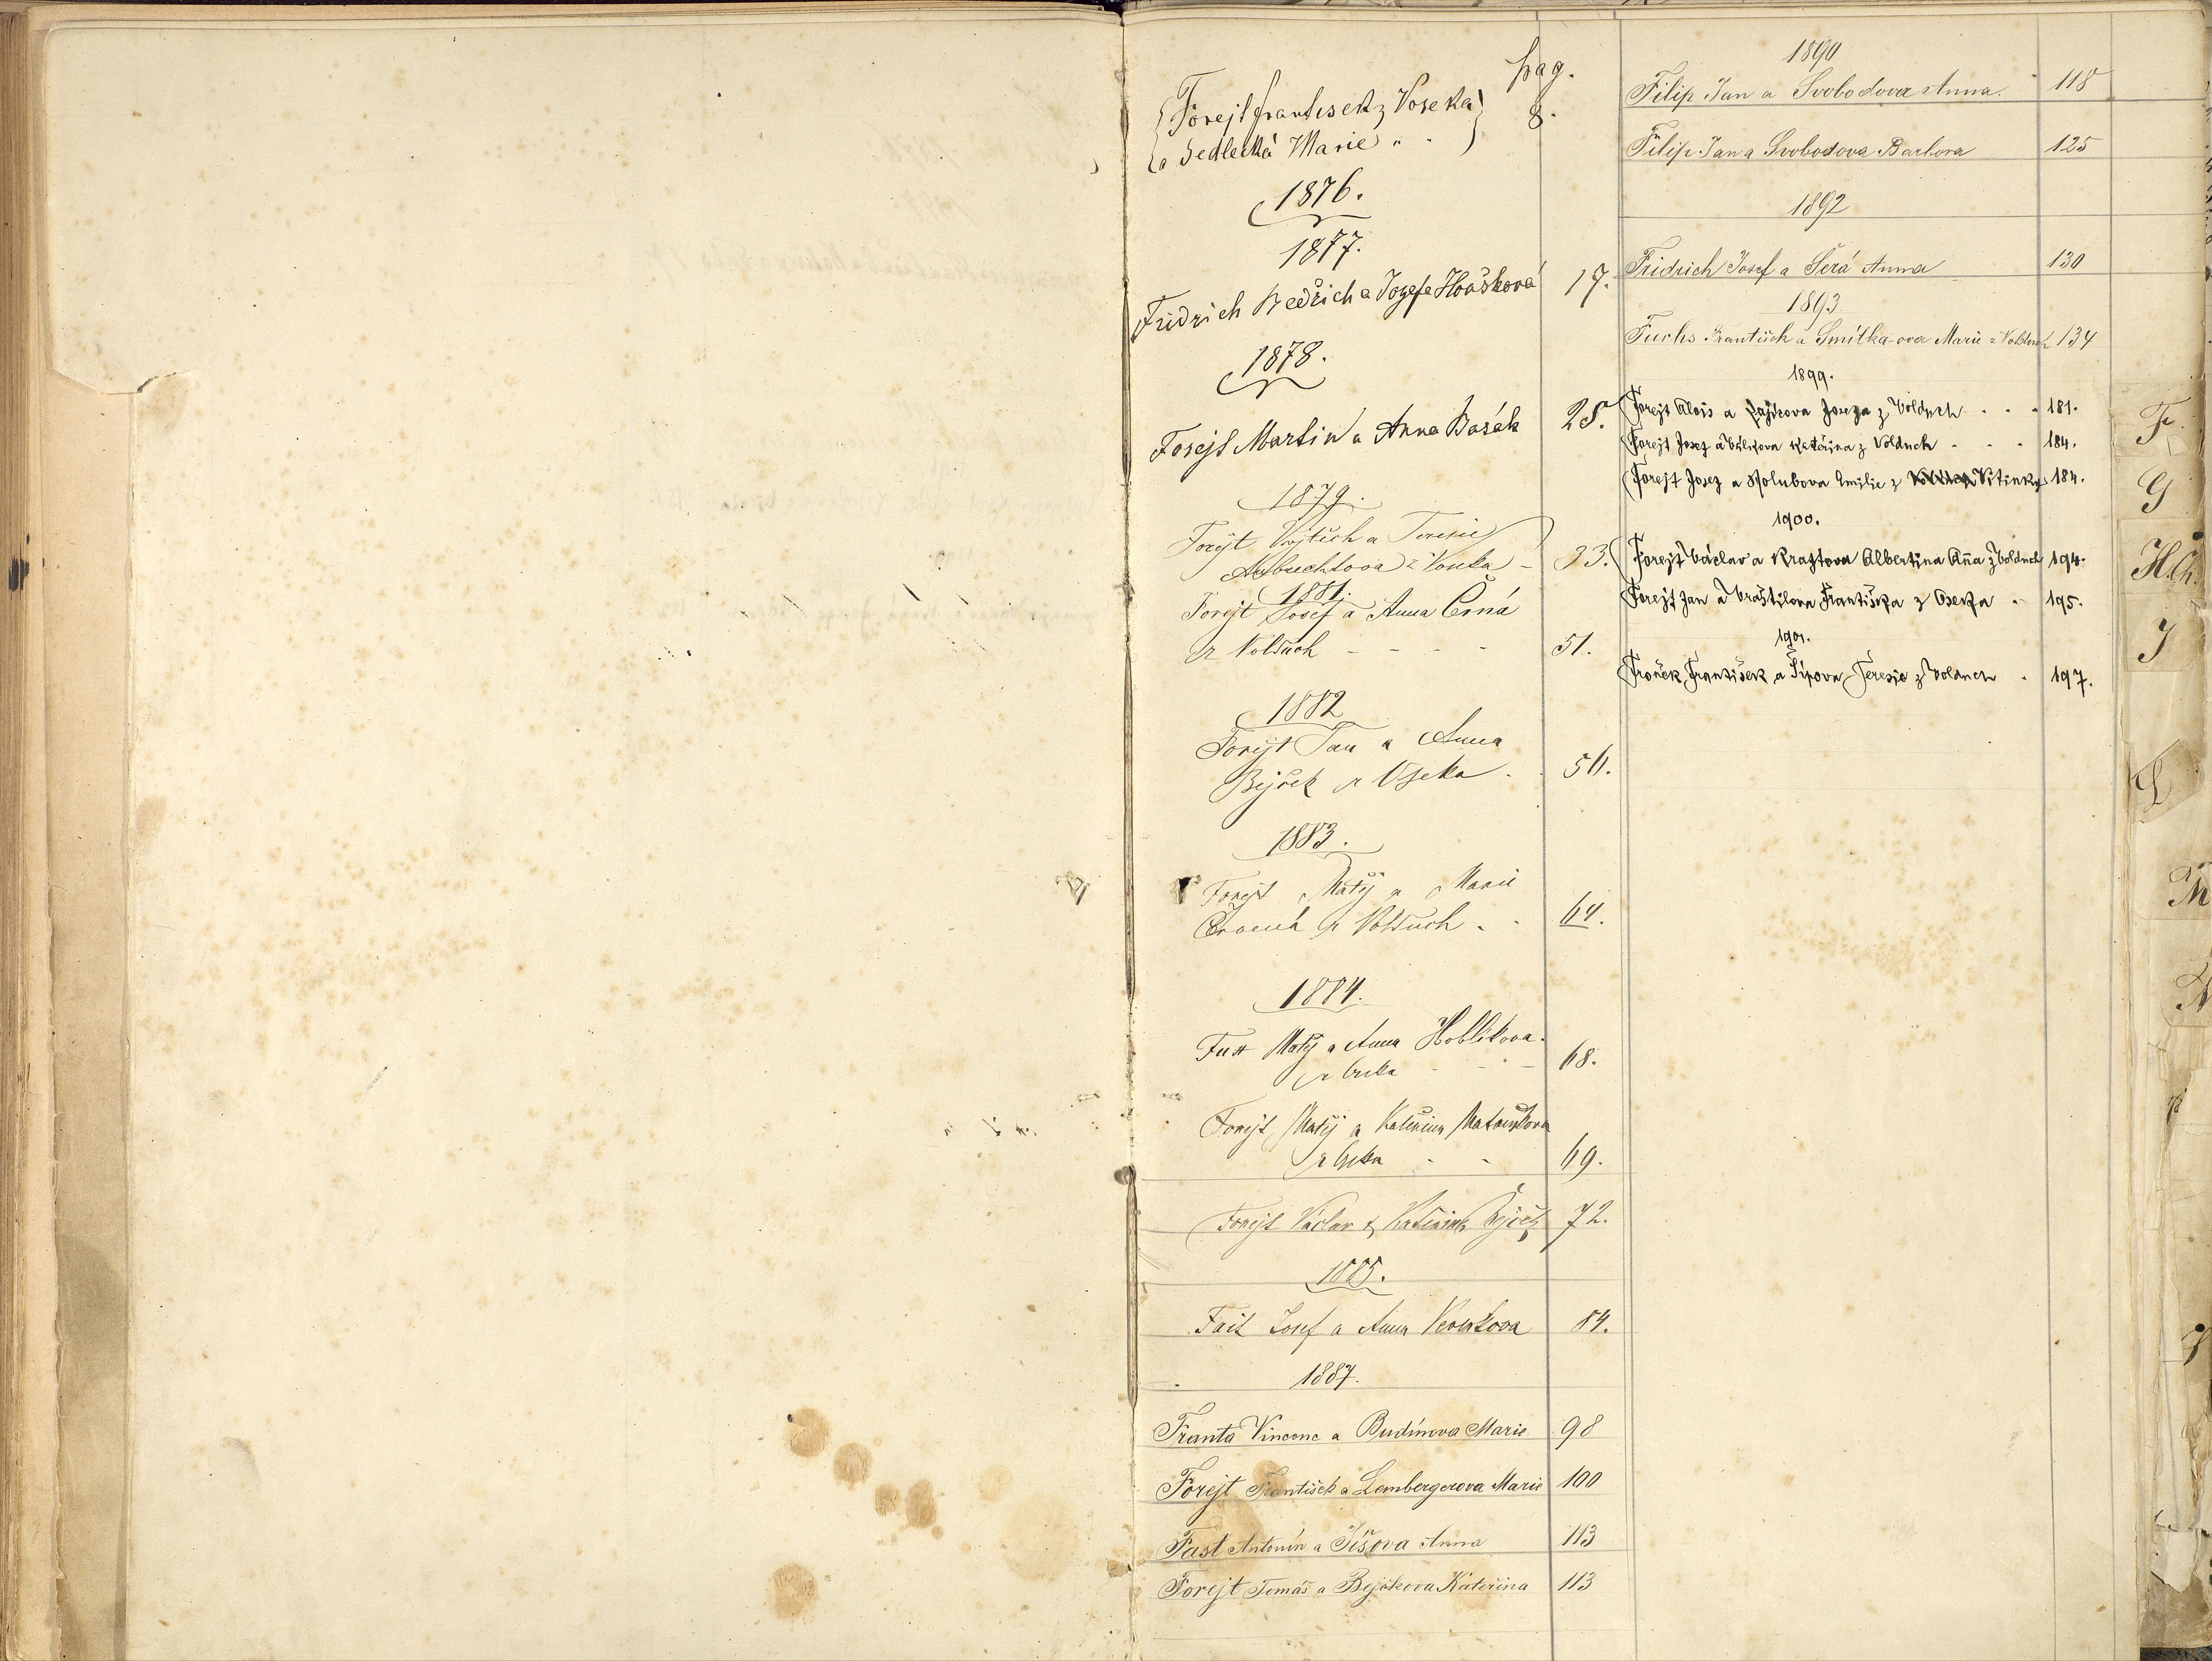 pag.
Forejt František z Voseka 8.
a Sedlecká Marie " "
1876.
1877.
Fridrich Bedřich a Jozefa Houšková 17.
1878.
Forejt Martin a Anna Basák 28.
1879.
Forejt Vojtěch a Teresie
z Voseka - 33.
1881.
Forejt Josef a Anna Černá
z Volduch - - - - 51.
1882
Forejt Jan a Anna
Bejček z Oseka . . 56.
1883.
Forejt Matěj a Marie
Červená z Volduch . . 64.
1884.
Fust Matěj a Anna Hoblíkova
z Oseka - - - 68.
Forejt Matěj a Kateřina Matouškova
z Oseka - - 69.
Forejt Václav & Kateřina Bejček 72.
1885.
Fait Josef a Anna 84.
1887.
Franta Vincenc a Budínova Marie 98
Forejt František a Lembergerova Marie 100
Fast Antonín a Jíšova Anna 113
Forejt Tomáš a Bejčkova Kateřina 113
1890
Filip Jan a Svobodova Anna. 118
Filip Jan a Svobodova Barbora 125
1892
Fridrich Josef a Šerá Anna 130
1893
Fuchs František a Smitka-ova Marie z Volduch 134
1899.
Forejt Alois a Josefa z Volduch . . . 181.
Forejt Josef a Kateřina z Volduch . . . 184.
Forejt Josef a Holubova Emilie z Vitinky 184.
1900.
Forejt Václav a Kraftova Albertina Aña z Volduch 194.
Forejt Jan a Vraštilova Františka z Oseka . 195.
1901.
Froněk František a Šípova Teresie z Volduch . 197.
F
G
H.Ch.
J
L
M
N
P